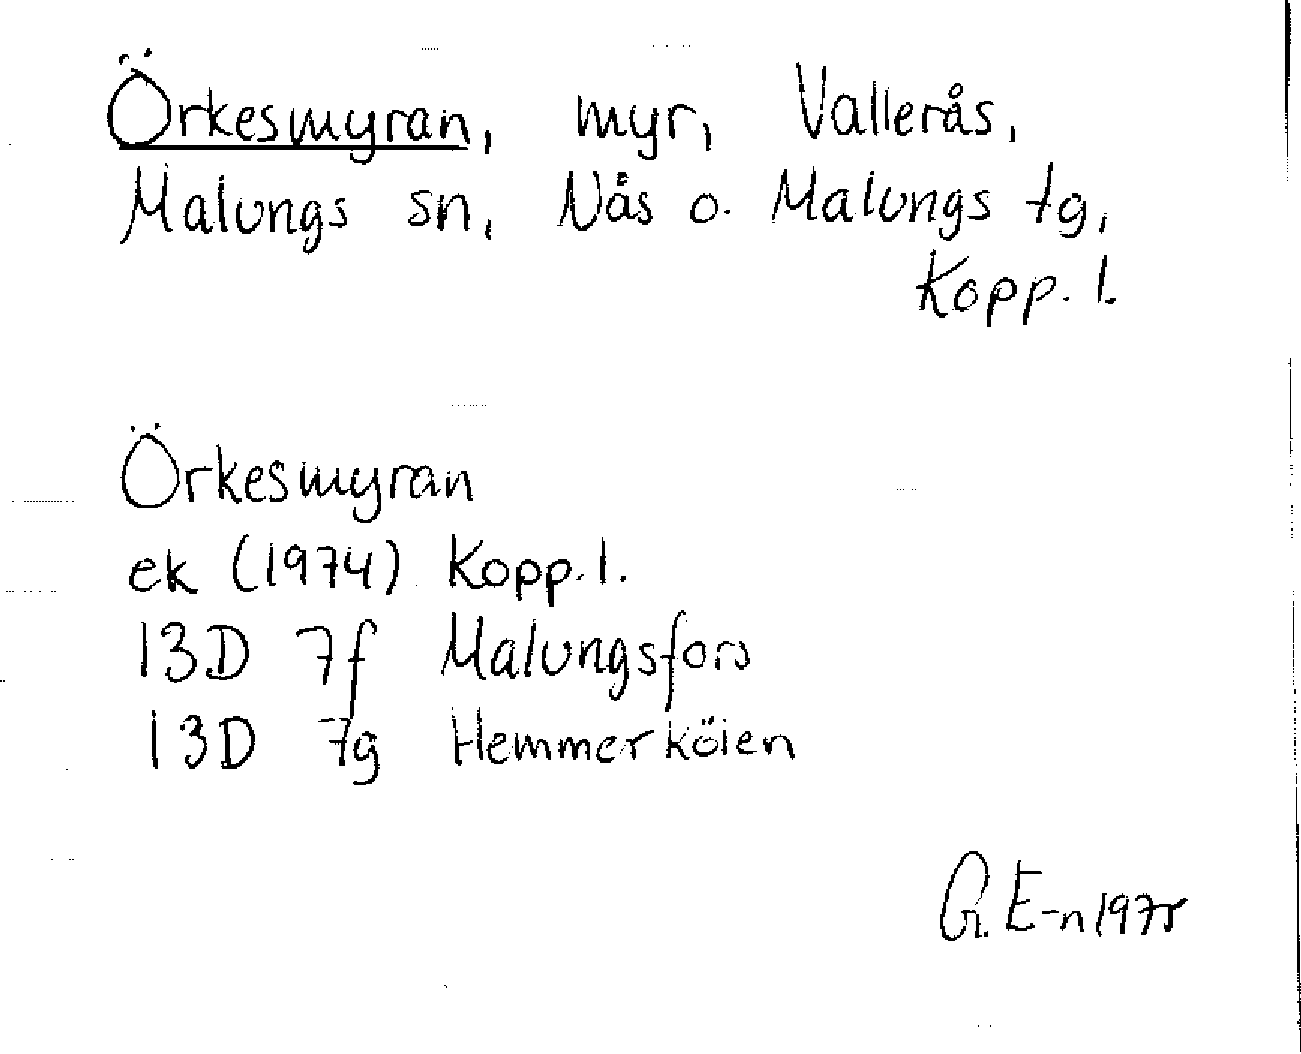 Örkesmyran, myr, Vallerås,
Malungs sn, Nås o. Malungs tg,
Kopp. l.
Örkesmyran
ek (1974) Kopp. l.
13D 7f Malungsfors
13D 7g Hemmerköien
G. E-n 1975